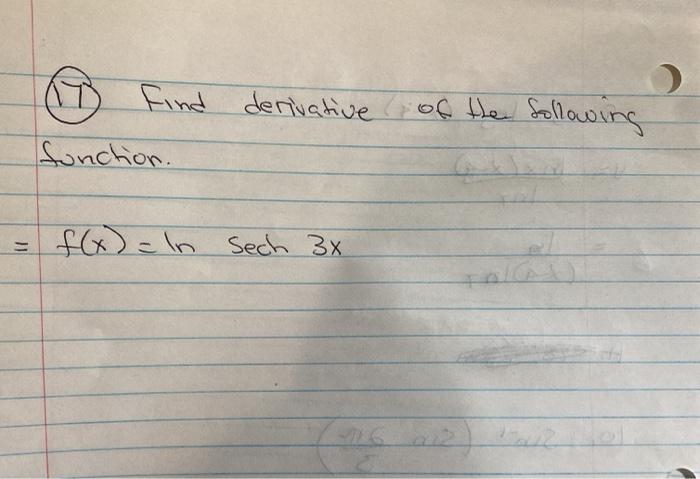 17 Find derivative of the following
function.
= f(x) = ln Sech 3x